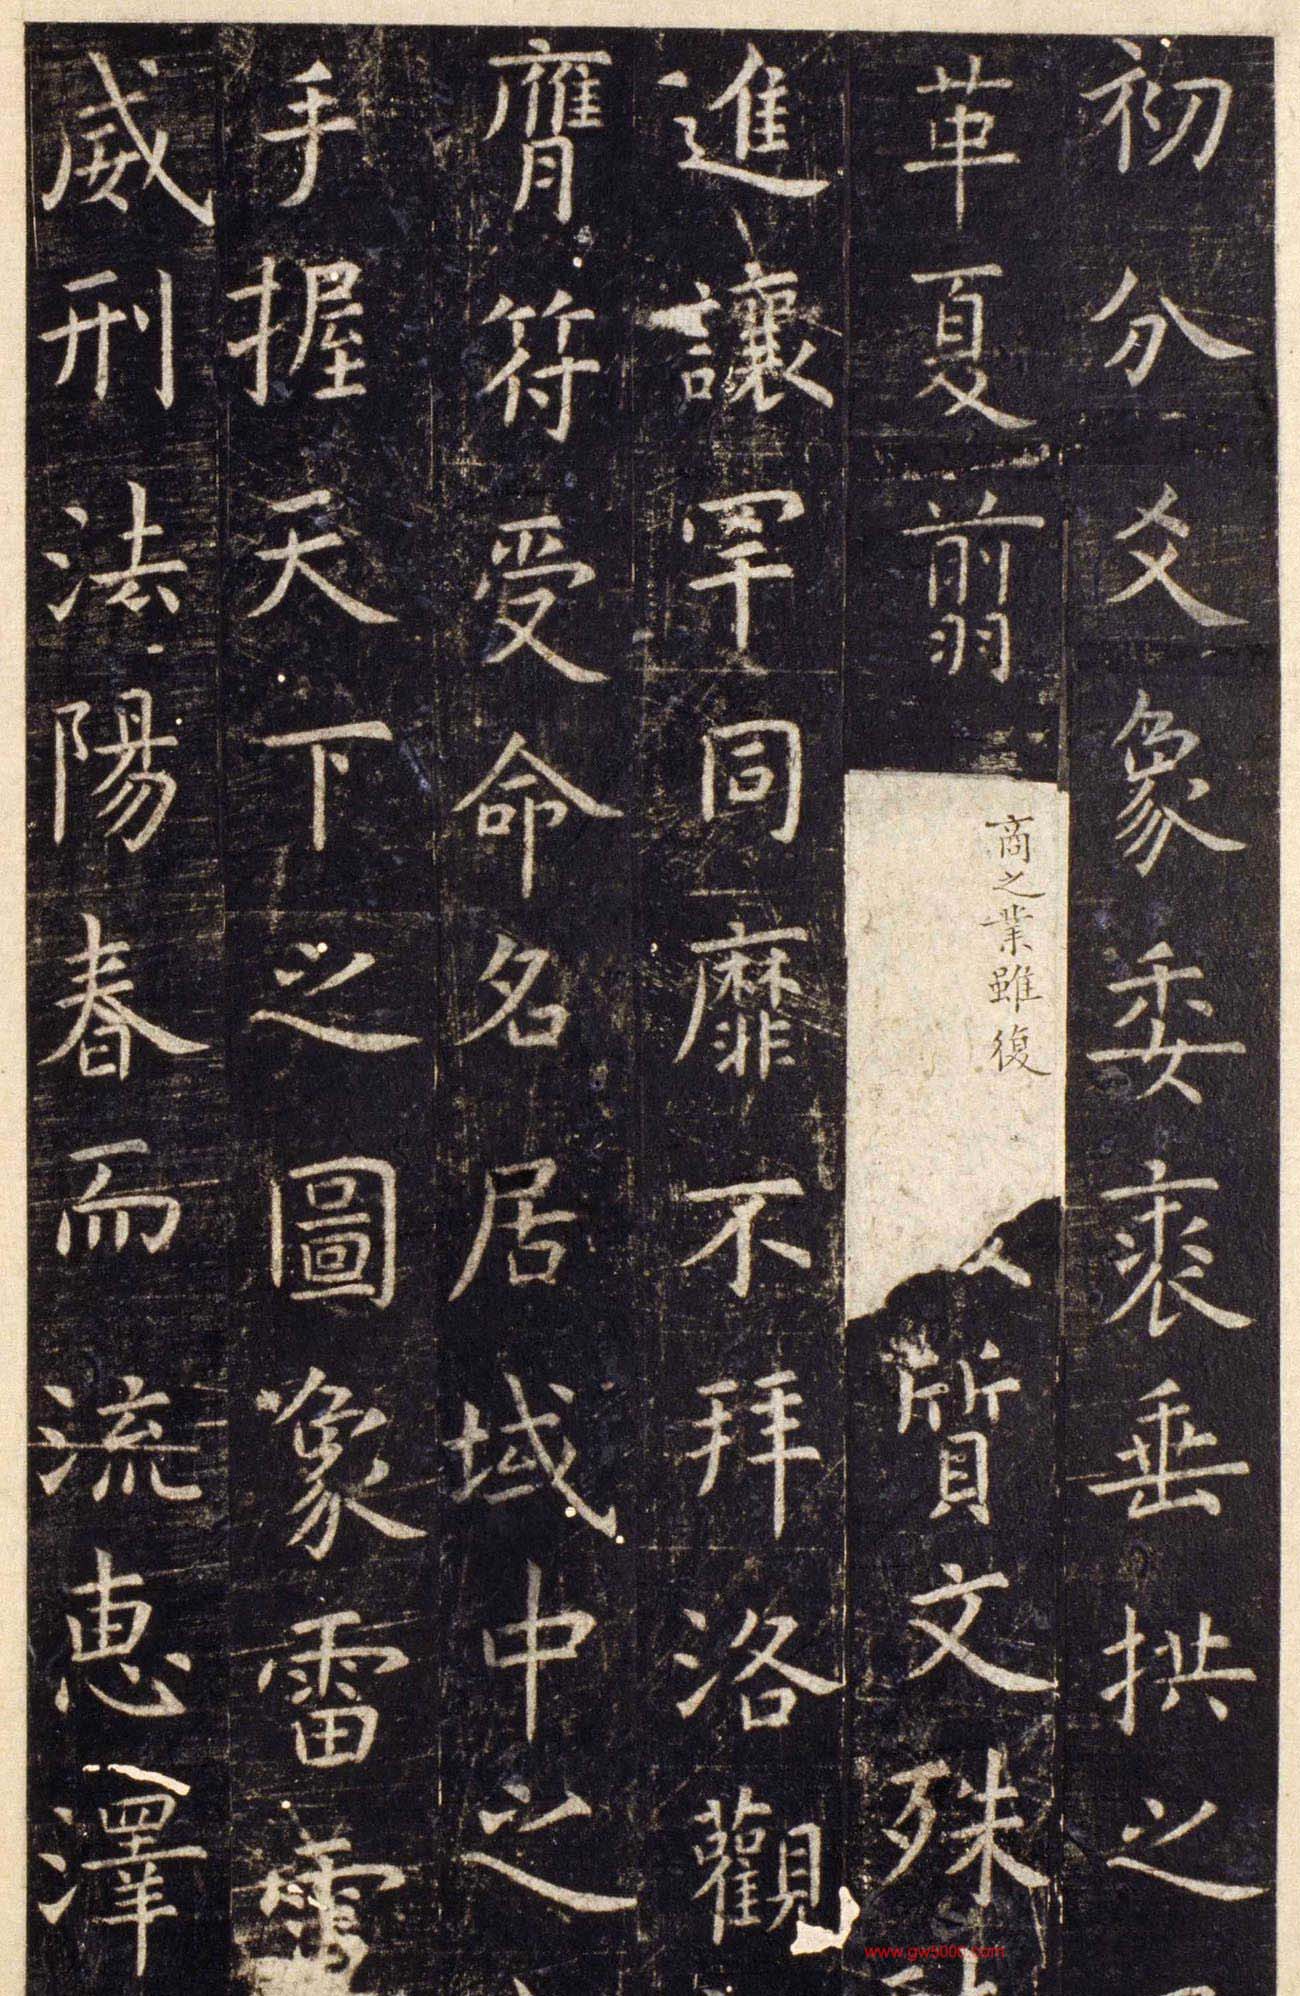 初分爻象委裘垂拱之
革夏翦
商之業雖復
質文殊
進讓罕同靡不拜洛觀
膺符受命名居域中之
手握天下之圖象雷
威刑法陽春而流惠澤
www.gw5000.com